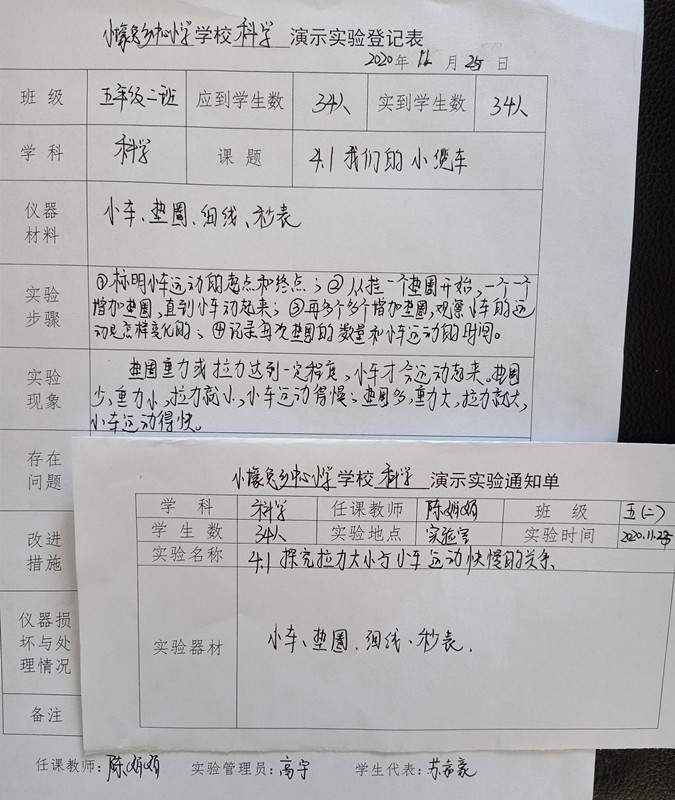 小壕兔乡中心小学学校 科学 演示实验登记表
2020年 11月 25日
班级 五年级二班 应到学生数 34人 实到学生数 34人
学科 科学 课题 4.1 我们的小缆车
仪器材料 小车、垫圈、细线、秒表
实验步骤 ①标明小车运动的起点和终点;②从挂一个垫圈开始,一个一个
增加垫圈,直到小车动起来;③再多个多个增加垫圈,观察小车的运
动是怎样变化的;④记录每次垫圈的数量和小车运动的时间。
实验现象 垫圈重力或拉力达到一定程度,小车才会运动起来。垫圈
少,重力小,拉力就小,小车运动得慢;垫圈多,重力大,拉力就大,
小车运动得快。
存在问题
改进措施
仪器损坏与处理情况
备注
任课教师: 陈娇娇 实验管理员: 高宇 学生代表:
小壕兔乡中心小学学校 科学 演示实验通知单
学科 科学 任课教师 陈娇娇 班级 五(二)
学生数 34人 实验地点 实验室 实验时间 2020.11.25
实验名称 4.1 探究拉力大小与小车运动快慢的关系
实验器材 小车、垫圈、细线、秒表.